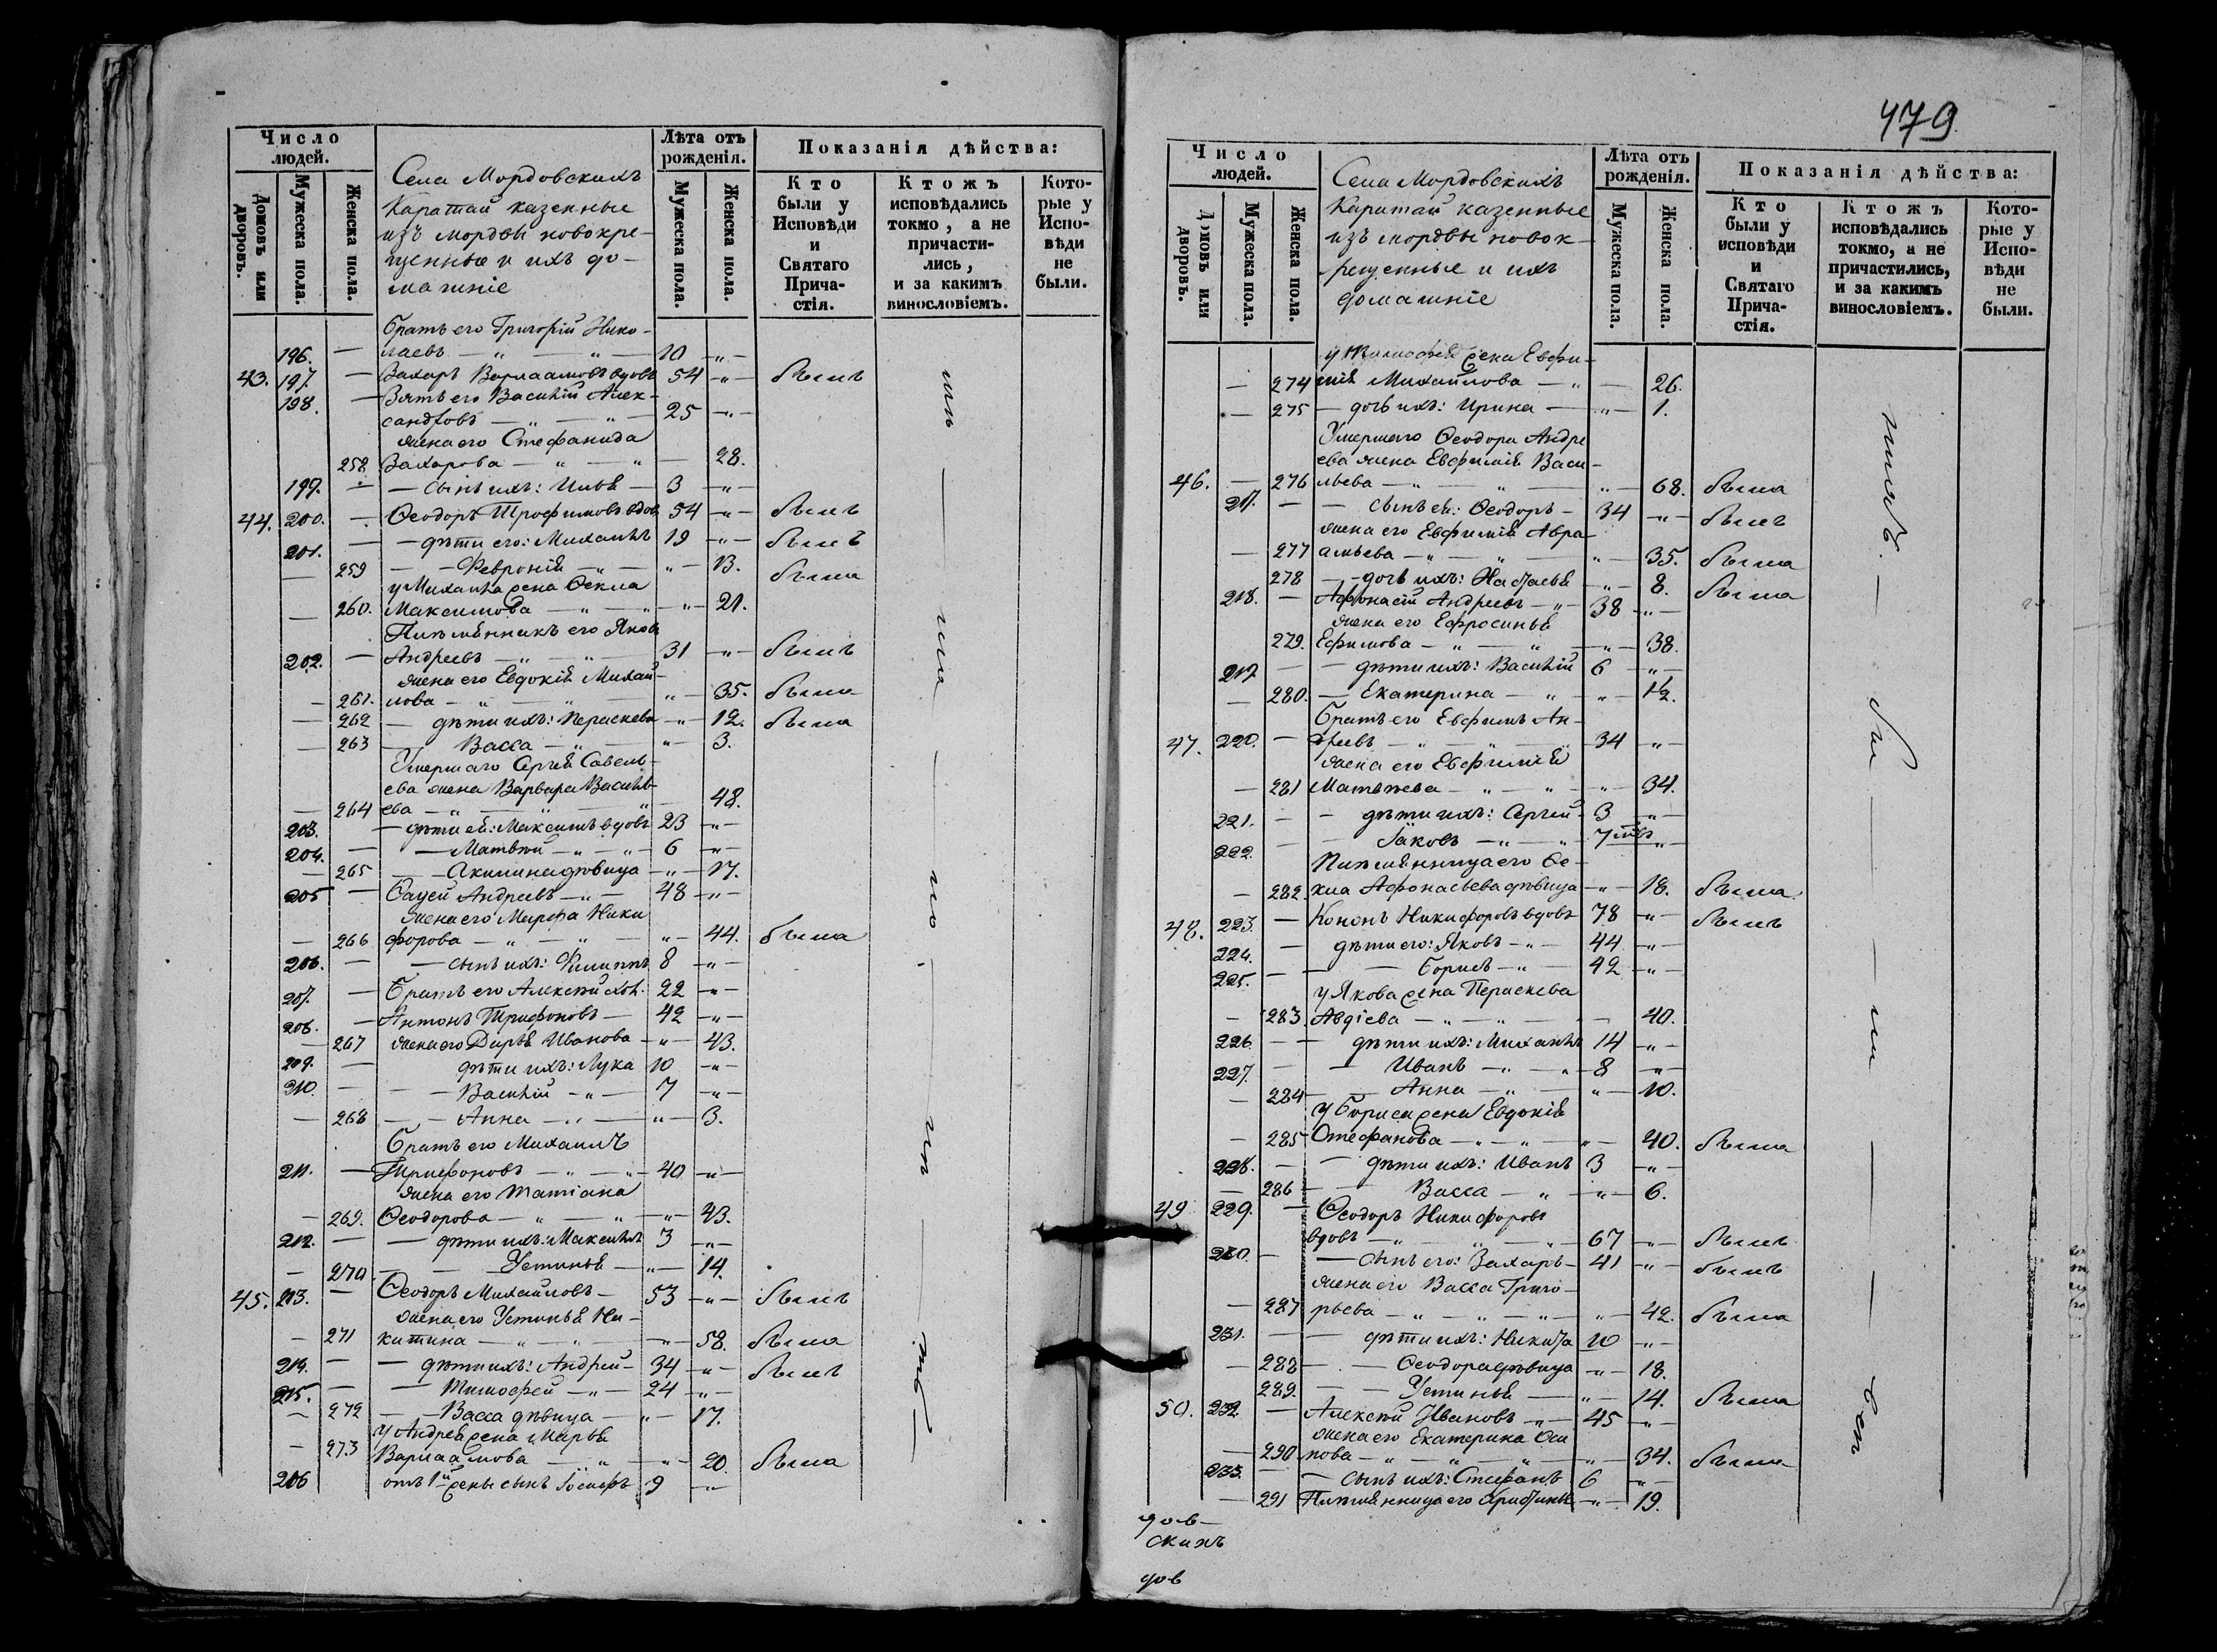 Число людей.
Лѣта отъ рожденія.
Показанія дѣйства:
Домовъ или дворовъ.
Мужеска пола.
Женска пола.
Села Мордовскихъ
Каратай казенные
изъ мордвы новокре-
щенные и ихъ до-
машніе
Мужеска пола.
Женска пола.
Кто были у Исповѣди и Святаго Прича-стія.
Ктожъ исповѣдались токмо, а не причасти-лись, и за какимъ винословіемъ.
Кото-рые у Испо-вѣди не были.
братъ его Григорій Нико-
196. — лаевъ — „ — „ — 10 — „ —
43. 197. — Захаръ Варлаамовъ вдовъ 54 — „ — былъ
198. — Зять его Василій Алек-
сандровъ — „ — „ 25 — „ —
жена его Стефанида
258. Захарова — „ — „ — 28.
199. — — сынъ ихъ: Илья — 3 — „ —
44. 200. — Ѳеодоръ Трофимовъ вдов 54 — „ — былъ
201. — — дѣти его: Михаилъ 19 — „ — былъ
— 259 — — Февронія — „ — „ — 13. была
у Михаила жена Ѳекла
— 260. Максимова — „ — „ — „ — 21.
Племянникъ его Яковъ
202. — Андреевъ — „ — „ — 31 — „ — былъ
жена его Евдокія Михай-
— 261. лова — „ — „ — 35. была
— 262 — дѣти ихъ: Параскева — „ — 12. была
— 263 — Васса — „ — „ — 3.
Умершаго Сергія Савель-
ева жена Варвара Василь-
— 264 ева — „ — „ — „ — 48.
203. — дѣти ея: Максимъ вдовъ 23 — „ —
204. — — Матвѣй — „ — „ — 6 — „ —
— 265 — Акилина дѣвица — „ — 17.
205 — Сацей Андреевъ — „ — 48 — „ —
жена его Марфа Ники
— 266 форова — „ — „ — „ — 44. была
206. — — сынъ ихъ: Филиппъ 8 — „ —
207. — Братъ его Алексѣй хол. 22 — „ —
208. — Антонъ Трифоновъ — 42 — „ —
— 267 жена его Дарья Иванова — „ — 43.
209. — дѣти ихъ: Лука 10 — „ —
210. — — Василій — „ — 7 — „ —
— 268 — — Анна — „ — „ — 3.
братъ его Михаилъ
211. — Трифоновъ — „ — „ — 40 — „ —
жена его Татіана
— 269. Ѳеодорова — „ — „ — „ — 43.
212. — — дѣти ихъ: Максимъ 3 — „ —
— 270 — — Устинья — „ — 14.
45. 213. — Ѳеодоръ Михайловъ — 53 — „ — былъ
жена его Устинья Ни-
— 271 китина — „ — „ — 58. была
214. — — дѣти ихъ: Андрей — 34 — „ — былъ
215. — — Тимофей — „ — 24 — „ —
— 272 — — Васса дѣвица — „ — 17.
у Андрея жена Марья
— 273 Варлаамова — „ — „ — 20. была
216 отъ 1й жены сынъ Іосифъ 9 — „ —
479
Число людей.
Лѣта отъ рожденія.
Показанія дѣйства:
Домовъ или дворовъ.
Мужеска пола.
Женска пола.
Села Мордовскихъ
Каратай казенные
изъ мордвы новок-
рещенные и ихъ
домашніе
Мужеска пола.
Женска пола.
Кто были у исповѣди и Святаго Прича-стія.
Ктожъ исповѣдались токмо, а не причастились, и за какимъ винословіемъ.
Кото-рые у Испо-вѣди не были.
у Тимофея жена Евфи-
— 274 мія Михайлова — „ — 26.
— 275 — дочь ихъ: Ирина — „ — 1.
Умершаго Ѳеодора Андре
ева жена Евфимія Васи-
46. — 276 льева — „ — „ — „ — 68. была
217. — — сынъ ея: Ѳеодоръ — 34 — „ — былъ
жена его Евфимія Авра-
— 277 амьева — „ — „ — „ — 35. была
278 — дочь ихъ: Настасья — „ — 8. была
218. — Афонасій Андреевъ — „ — 38 — „ —
жена его Ефросинья
279. Ефимова — „ — „ — „ — 38.
219. — — дѣти ихъ: Василій 6 — „ —
— 280. — Екатерина — „ — „ — 1/2.
братъ его Евфимъ Ан-
47. 220. — дреевъ — „ — „ — 34 — „ —
жена его Евфимія
— 281 Матвѣева — „ — „ — „ — 34.
221. — — дѣти ихъ: Сергій — 3 — „ —
222. — — Іаковъ — „ — „ — 7 мѣ. „ —
Племянница его Ѳе-
— 282. кла Афонасьева дѣвица — „ — 18. была
48. 223. — Кононъ Никифоровъ вдовъ 78 — „ — былъ
224. — дѣти его: Яковъ — „ — 44 — „ —
225. — — Борисъ — „ — 42 — „ —
у Якова жена Параскева
— 283. Авдіева — „ — „ — 40.
226. — — дѣти ихъ: Михаилъ 14 — „ —
227. — — Иванъ — „ — „ 8 — „ —
— 284 — Анна — „ — „ — 10.
у Бориса жена Евдокія
— 285 Стефанова — „ — „ — „ — 40. была
228. — — дѣти ихъ: Иванъ 3 — „ —
— 286 — Васса — „ — „ — 6.
49 229. — Ѳеодоръ Никифоровъ
вдовъ — „ — „ — „ — 67 — „ — былъ
230. — — сынъ его: Захаръ — 41 — „ — былъ
жена его Васса Григо-
— 287 рьева — „ — „ — „ — „ — 42. была
231. — — дѣти ихъ: Никита 10 — „ —
— 288 — — Ѳеодора дѣвица — „ — 18.
289. — — Устинья — „ — 14. была
50. 232. — Алексѣй Ивановъ — „ — 45 — „ —
жена его Екатерина Оси
— 290 пова — „ — „ — „ — „ — 34. была
233. — — сынъ ихъ: Стефанъ 6 — „ —
— 291 Племянница его Христина — „ — 19.
дов-
скихъ
дов